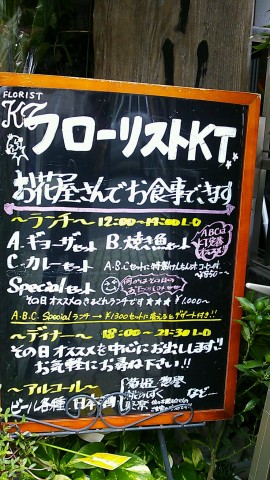 FLORIST
KT フローリストKT
お花屋さんでお食事できます
〜ランチ〜 12:00〜14:00 L.O
A.ギョーザセット B.焼き魚セット
C.カレーセット
A.B.Cセットに特製けんちん
Specialセット
その日オススメのきまぐれランチです ★★★ ¥1,000〜
A.B.C.Specialランチ → ¥1300セットに変えるとデザート付き!!
〜ディナー〜 18:00〜21:30 L.O
その日オススメを中心にお出しします!!
お気軽にお尋ね下さい!!
〜アルコール〜
ビール各種 日本酒 など…